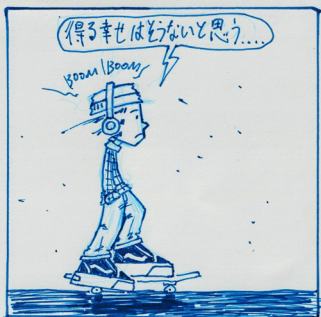 得る幸せはそうないと思う....
BOOM BOOM